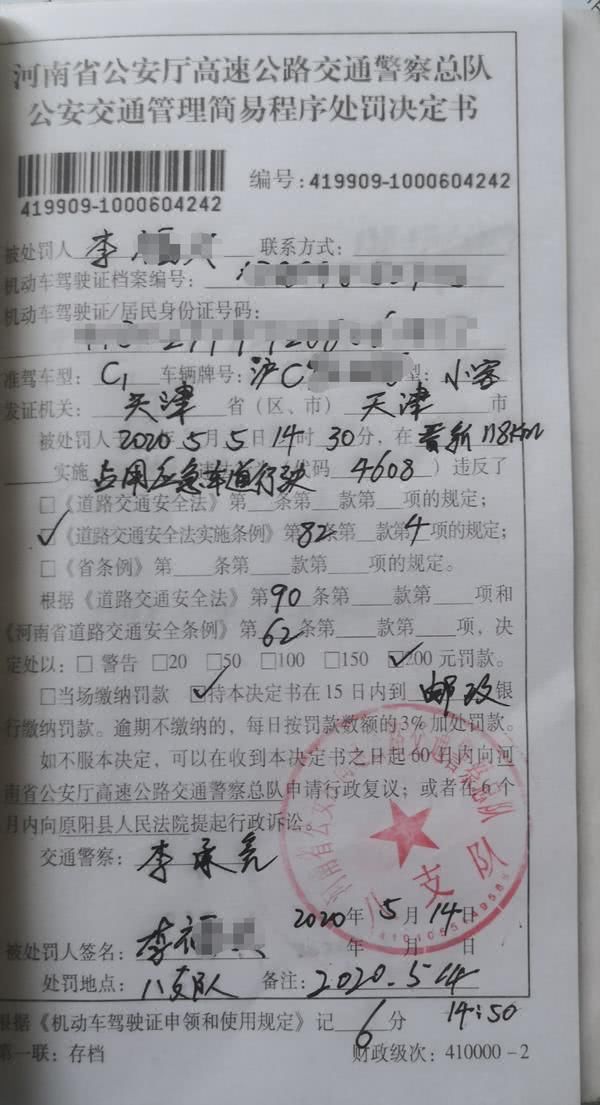 河南省公安厅高速公路交通警察总队
公安交通管理简易程序处罚决定书
编号:419909-1000604242
419909-1000604242
被处罚人 李 联系方式:
机动车驾驶证档案编号:
机动车驾驶证/居民身份证号码:
准驾车型: C1 车辆牌号: 沪C 型: 小客
发证机关: 天津 省(区、市) 天津 市
被处罚人于2020年5月5日14时30分, 在 晋新118Km
实施 占用应急车道行驶 代码 4608 )违反了
□《道路交通安全法》第 条第 款第 项的规定;
☑《道路交通安全法实施条例》第82条第 款第4项的规定;
□《省条例》第 条第 款第 项的规定。
根据《道路交通安全法》第90条第 款第 项和
《河南省道路交通安全条例》第62条第 款第 项, 决
定处以: □ 警告 □20 □50 □100 □150 ☑200 元罚款。
□当场缴纳罚款 ☑持本决定书在 15 日内到 邮政 银
行缴纳罚款。逾期不缴纳的, 每日按罚款数额的3%加处罚款。
如不服本决定, 可以在收到本决定书之日起60日内向河
南省公安厅高速公路交通警察总队申请行政复议; 或者在6个
月内向原阳县人民法院提起行政诉讼。
交通警察: 李承亮
八支队
2020年5月14日
被处罚人签名: 李 年 月 日
处罚地点: 八支队 备注: 2020.5.14
14:50
根据《机动车驾驶证申领和使用规定》记 6 分
第一联: 存档 财政级次: 410000-2